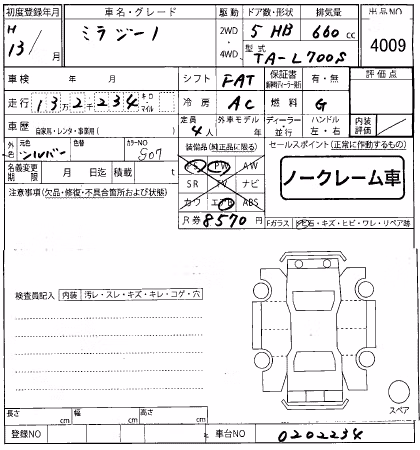 初度登録年月 車名・グレード 駆動 ドア数・形状 排気量 出品NO
H 13/ 月 ミラジーノ 2WD 4WD 5 HB 660 cc 4009
型式 TA-L700S
車検 年 月 シフト FAT 保証書 有・無 評価点
走行 13万2千234 キロ マイル 冷房 AC 燃料 G
車歴 自家用・レンタ・事業用( ) 定員 4人 外車モデル 年 ディーラー 並行 ハンドル 左・右 内装評価
外色 元色 シルバー 色替 カラーNO S07 装備品(純正品に限る) セールスポイント(正常に動作するもの)
名義変更期限 月 日迄 積載 t PS PW AW
ノークレーム車
SR TV ナビ
注意事項(欠品・修復・不具合箇所および状態)
カワ エアB ABS
R券 8570 円 Fガラス 飛石・キズ・ヒビ・ワレ・リペア跡
検査員記入 内装 汚レ・スレ・キズ・キレ・コゲ・穴
スペア
長さ cm 幅 cm 高さ cm
登録NO 車台NO 0202234